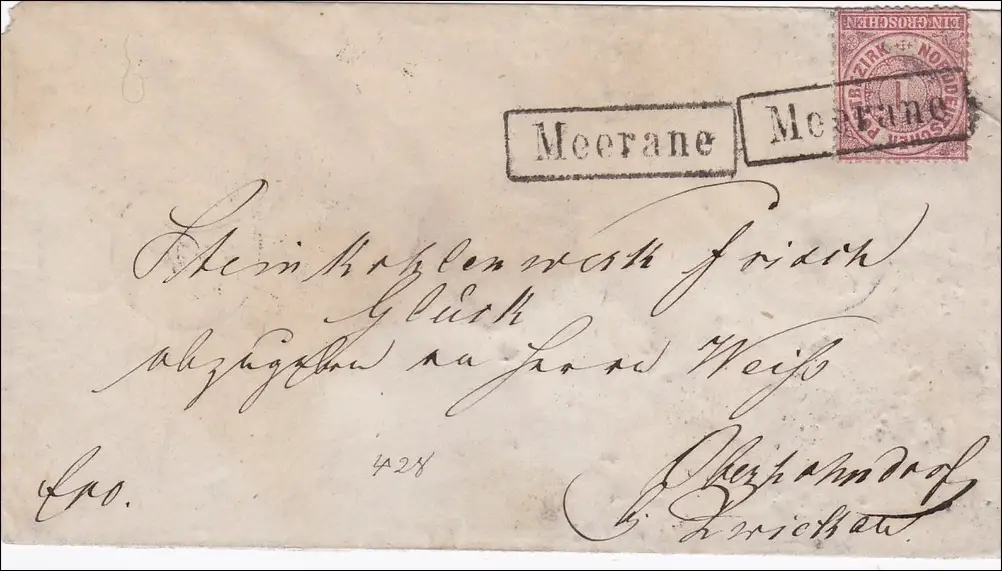 EIN GROSCHEN
NORDDEUTSCHER POSTBEZIRK
1
Meerane Meerane
Steinkohlenwerk frisch
Glück
abzugeben an Herrn Weiß
Oberhohndorf
b. Zwickau.
fro.
428